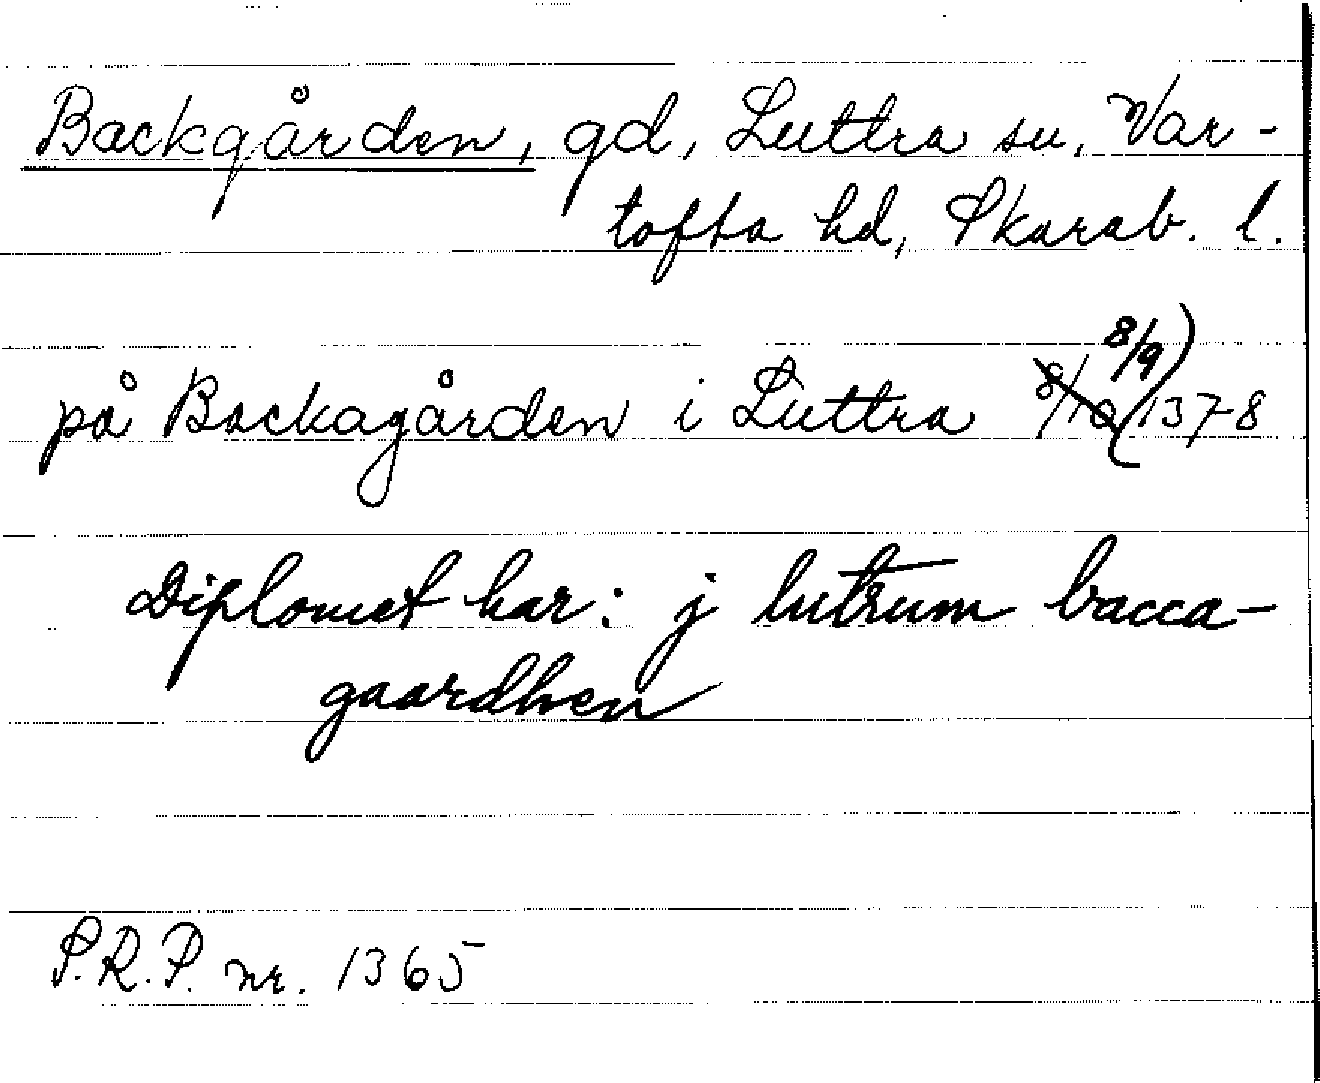 Backgården, gd, Luttra sn, Var-
tofta hd, Skarab. l.
på Backagården i Luttra 8/10 8/9 1378
Diplomet har: j lutrum bacca-
gaardhen
S.R.P. nr. 1365